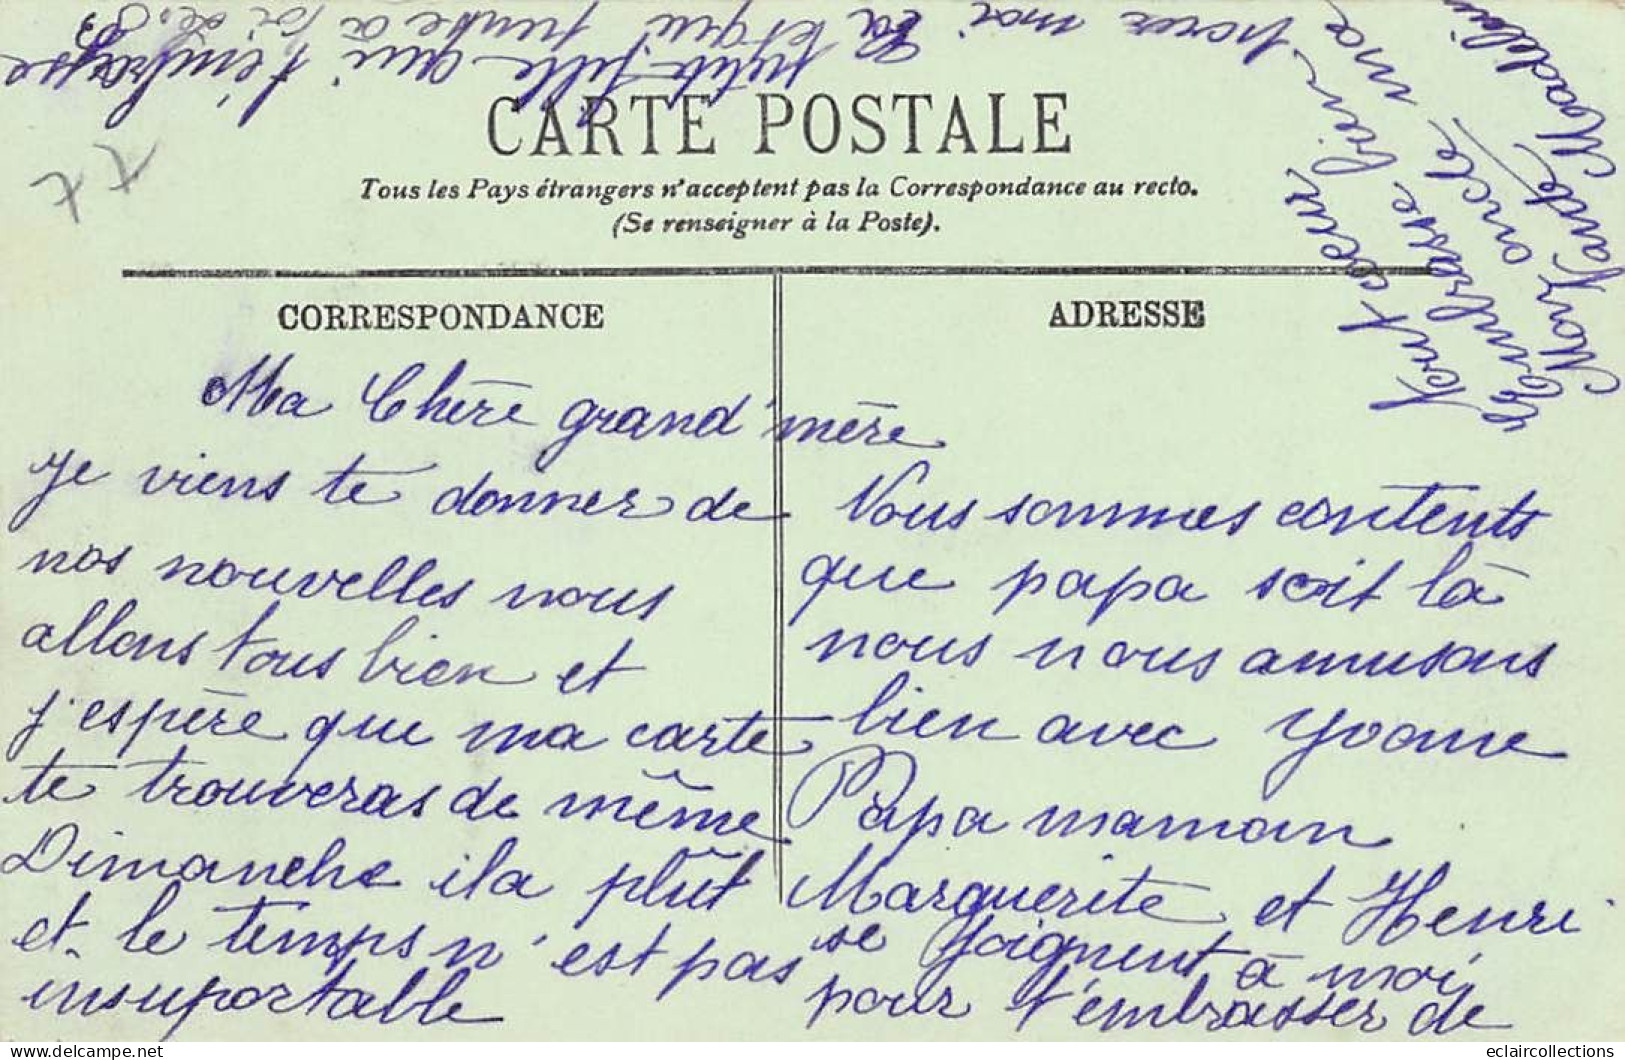 CARTE POSTALE
Tous les Pays étrangers n'acceptent pas la Correspondance au recto.
(Se renseigner à la Poste).
CORRESPONDANCE
ADRESSE
Ma Chère grand'mère
je viens te donner de
nos nouvelles nous
allons tous bien et
j'espère que ma carte
te trouveras de même
Dimanche il a plût
et le temps n'est pas
insuportable
Nous sommes contents
que papa soit là
nous nous amusons
bien avec Yvonne
Papa maman
Marguerite et Henri
se joignent à moi
pour t'embrasser de
tout coeur
embrasse bien
mon oncle, ma
tante, Madeleine
pour moi
Ta petite fille qui t'embrasse
et qui pense à toi
77
eclaircollections